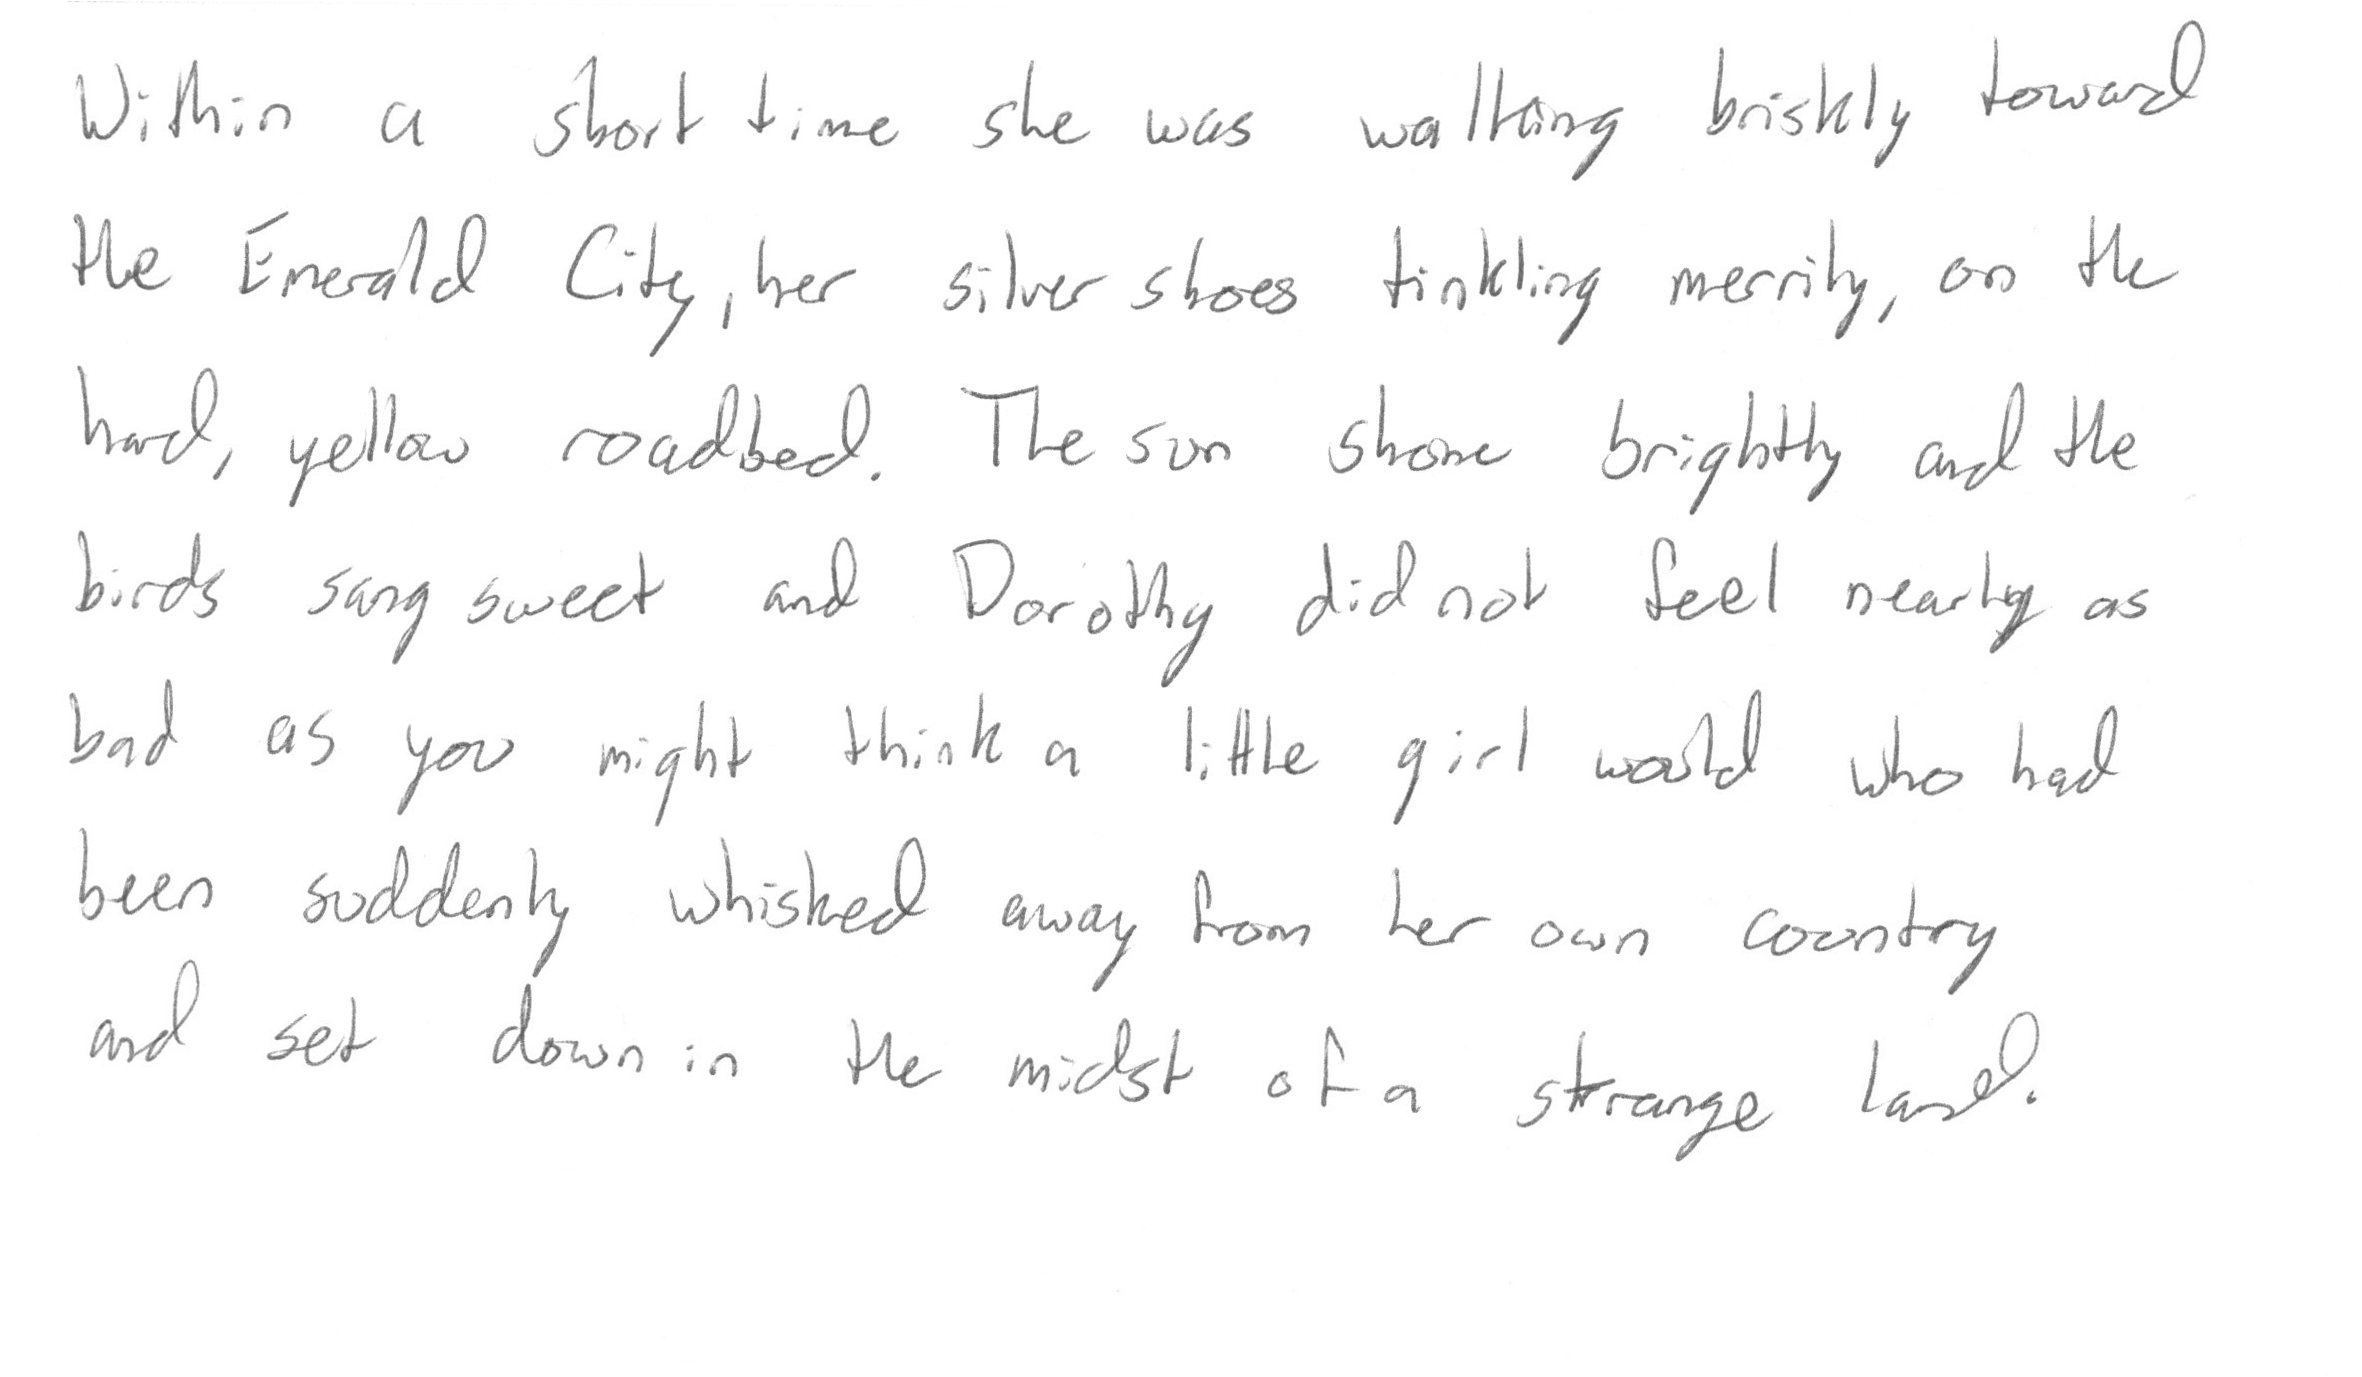 Within a short time she was walking briskly toward
the Emerald City, her silver shoes tinkling merrily, on the
hard, yellow roadbed. The sun shone brightly and the
birds sang sweet and Dorothy did not feel nearly as
bad as you might think a little girl would who had
been suddenly whisked away from her own country
and set down in the midst of a strange land.